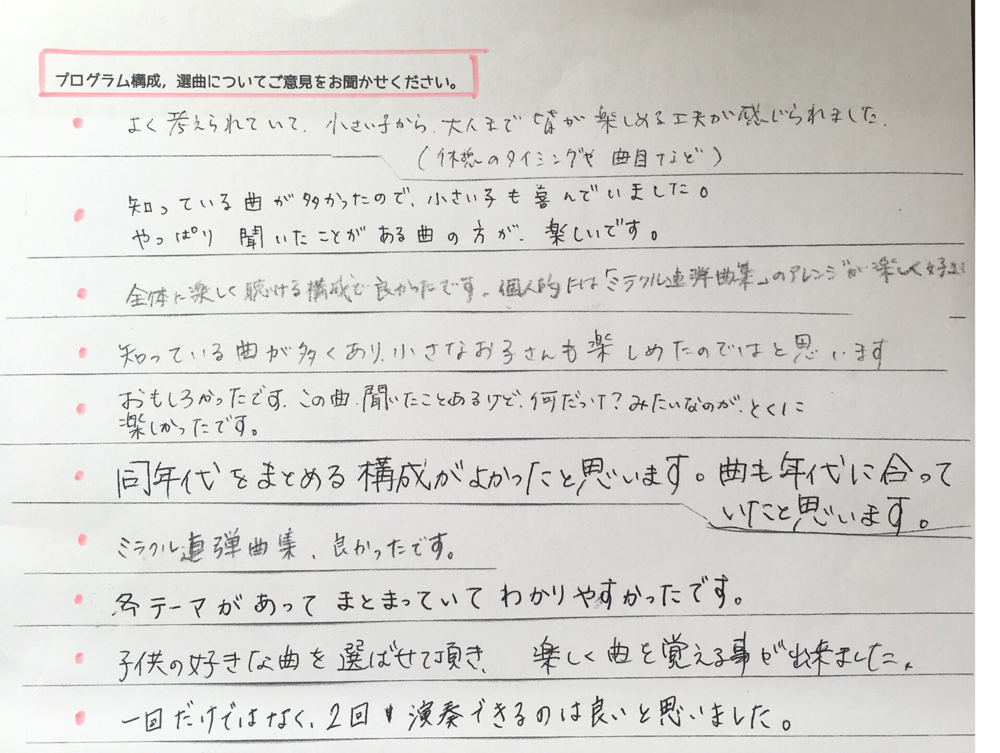 プログラム構成，選曲についてご意見をお聞かせください。
よく考えられていて、小さい子から、大人まで皆が楽しめる工夫が感じられました。
（休憩のタイミングや曲目など）
知っている曲が多かったので、小さい子も喜んでいました。
やっぱり聞いたことがある曲の方が、楽しいです。
全体に楽しく聴ける構成で良かったです。個人的には「ミラクル連弾曲集」のアレンジが楽しく好き
知っている曲が多くあり、小さなお子さんも楽しめたのではと思います
おもしろかったです。この曲、聞いたことあるけど、何だって？みたいなのが、とくに
楽しかったです。
同年代をまとめる構成がよかったと思います。曲も年代に合って
いたと思います。
ミラクル連弾曲集、良かったです。
各テーマがあってまとまっていてわかりやすかったです。
子供の好きな曲を選ばせて頂き、楽しく曲を覚える事が出来ました。
一回だけではなく、2回 演奏できるのは良いと思いました。